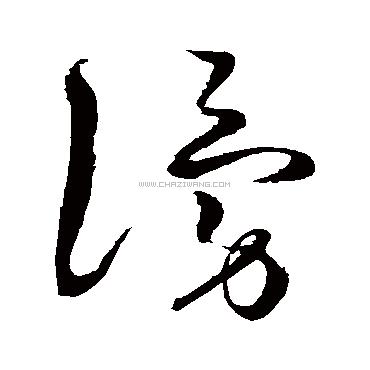 謗
WWW.CHAZIWANG.COM